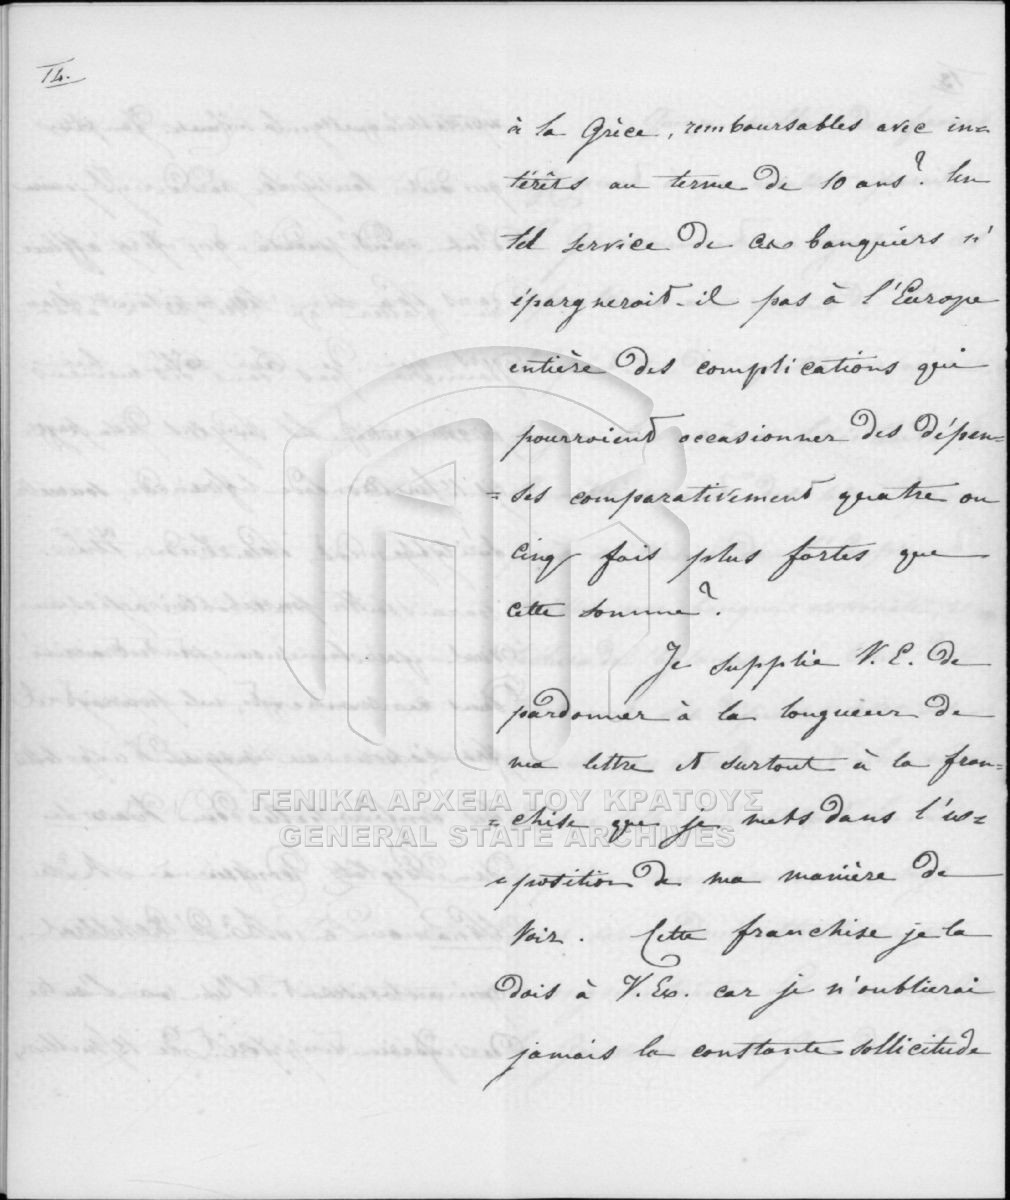 14.
à la Grèce, remboursables avec in=
térêts au terme de 10 ans? Un
tel service de ces banquiers n'
épargneroit-il pas à l'Europe
entière des complications qui
pourroient occasionner des dépen=
=ses comparativement quatre ou
cinq fois plus fortes que
cette somme?
Je supplie V. E. de
pardonner à la longueur de
ma lettre et surtout à la fran=
=chise que je mets dans l'ex=
=position de ma manière de
voir. Cette franchise je la
dois à V. Ex. car je n'oublierai
jamais la constante sollicitude
ΓΕΝΙΚΑ ΑΡΧΕΙΑ ΤΟΥ ΚΡΑΤΟΥΣ
GENERAL STATE ARCHIVES